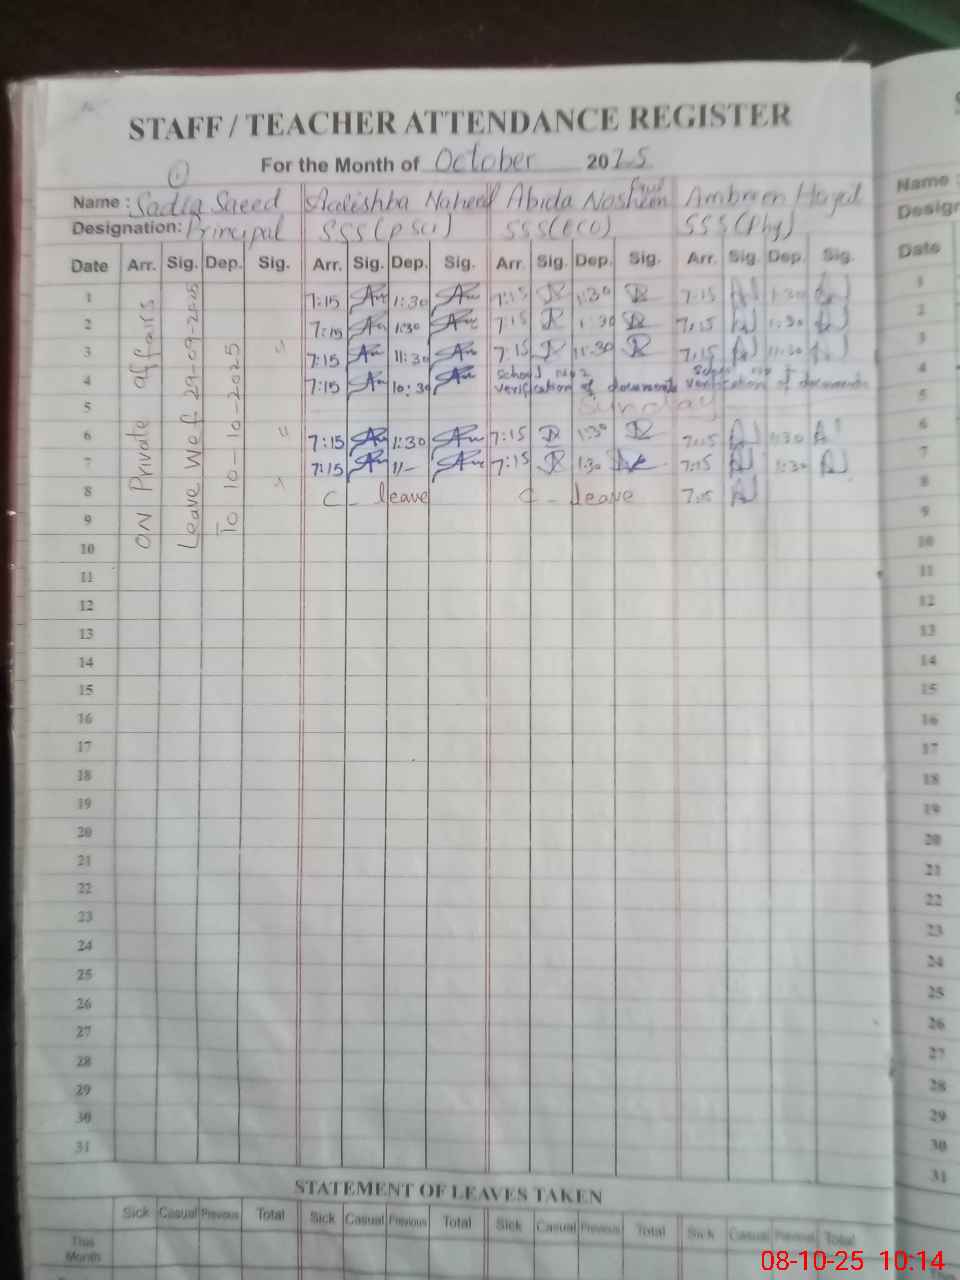 STAFF / TEACHER ATTENDANCE REGISTER
For the Month of October 2025
1
Name : Sadia Saeed Aalishba Naheed Abida Noshien Ambreen Hayat
Designation: Principal SSS(P Sci) SSS(ECO) SSS(Phy)
Date Arr. Sig. Dep. Sig. Arr. Sig. Dep. Sig. Arr. Sig. Dep. Sig. Arr. Sig. Dep. Sig.
ON Private affairs
Leave Wef 29-09-2025
To 10-10-2025
1 7:15 1:30 7:15 1:30 7:15 1:30
2 7:15 1:30 7:15 1:30 7:15 1:30
3 " 7:15 11:30 7:15 11:30 7:15 11:30
4 7:15 10:30 School no 2 verification of documents School no verification of documents
5 Sunday
6 " 7:15 1:30 7:15 1:30 7:15 1:30
7 7:15 11- 7:15 1:30 7:15 1:30
8 " C - leave C - leave 7:15
9
10
11
12
13
14
15
16
17
18
19
20
21
22
23
24
25
26
27
28
29
30
31
STATEMENT OF LEAVES TAKEN
Sick Casual Previous Total Sick Casual Previous Total Sick Casual Previous Total Sick Casual Previous Total
This Month
Name :
Design
Date
1
2
3
4
5
6
7
8
9
10
11
12
13
14
15
16
17
18
19
20
21
22
23
24
25
26
27
28
29
30
31
08-10-25 10:14